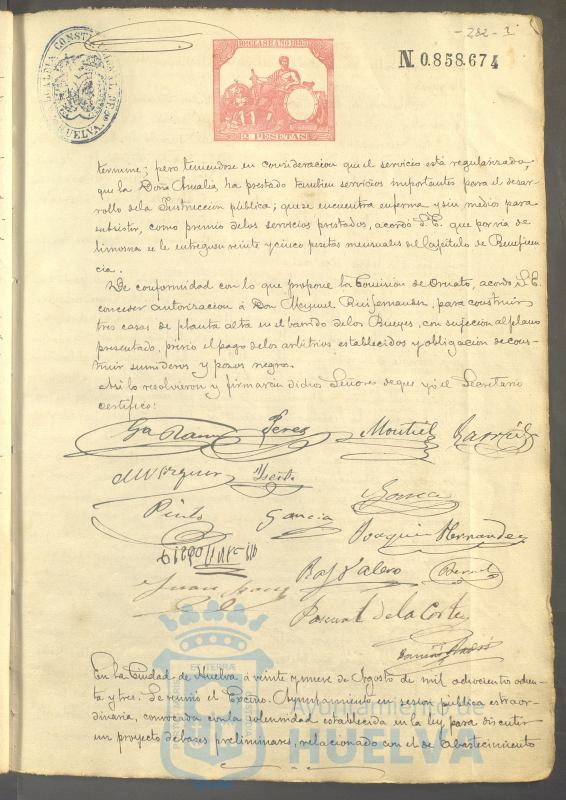 - 282 - 1
N. 0.858.674
10ª CLASE AÑO 1883
2 PESETAS
HUELVA
termine; pero teniendose en consideracion que el servicio está regularizado,
que la Doña Amalia, ha prestado tambien servicios importantes para el desar-
rollo dela Instruccion publica; que se encuentra enferma y sin medios para
subsistir, como premio delos servicios prestados, acordó S.E. que por via de
limosna se le entreguen veinte y cinco pesetas mensuales del Capitulo de Beneficen
cia.
De conformidad con lo que propone la Comision de Ornato, acordó S.E.
conceder autorizacion á Don Miguel Ruifernandez, para construir
tres casas de planta alta en el barrio delos Bueyes, con sujecion al plano
presentado, previo el pago delos arbitrios establecidos y obligacion de cons-
truir sumideros y pozos negros.
Asi lo resolvieron y firmarán dichos Señores de que yo el Secretario
certifico:
Perez Montiel Garrido
Pinto Garcia
Joaquin Hernandez
Valero Bernal
Juan
Pascual de la Corte
En la Ciudad de Huelva á veinte y nueve de Agosto de mil ochocientos ochen
ta y tres. Se reunió el Excmo. Ayuntamiento en sesion pública extraor-
dinaria, convocada con la solemnidad establecida en la ley, para discutir
un proyecto de bases preliminares, relacionado con el de abastecimiento
Ayuntamiento de
HUELVA